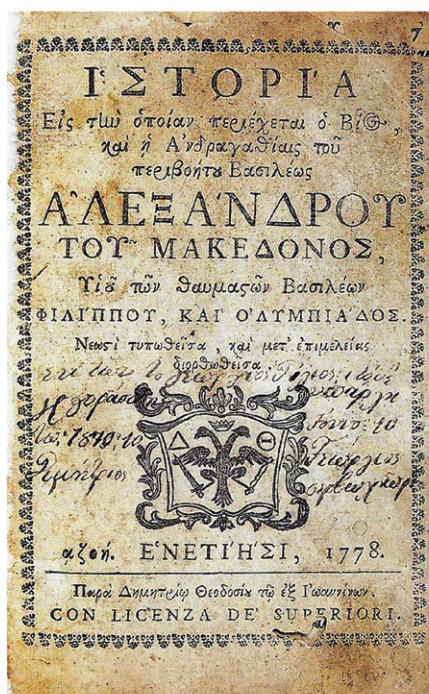 7
ἹΣΤΟΡΊΑ
Εἰς τὴν ὁποίαν περιέχεται ὁ Βίος,
καὶ ἡ Ἀνδραγαθίαις τοῦ
περιβοήτου Βασιλέως
ἈΛΕΞΆΝΔΡΟΥ
ΤΟΥ͂ ΜΑΚΕΔΌΝΟΣ,
Υἱοῦ τῶν θαυμαστῶν Βασιλέων
ΦΙΛΊΠΠΟΥ, ΚΑῚ ὈΛΥΜΠΙΆΔΟΣ.
Νεωστὶ τυπωθεῖσα, καὶ μετ' ἐπιμελείας
διορθωθεῖσα.
Δ Θ
Γεώργιος
αψοή. ἘΝΕΤΊΗΣΙ, 1778.
Παρὰ Δημητρίῳ Θεοδοσίου τῷ ἐξ Ἰωαννίνων.
CON LICENZA DE' SUPERIORI.